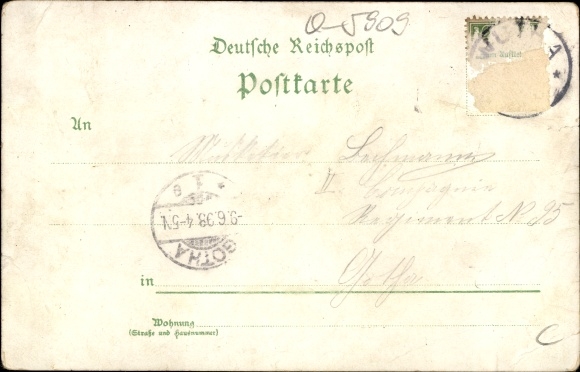 Q-5909
Deutsche Reichspost
Postkarte
WUTHA
An
Musketier Bachmann
II Compagnie
Regiment No 95
1
-9.6.98. 4-5N
GOTHA
in Gotha
Wohnung
(Straße und Hausnummer)
C